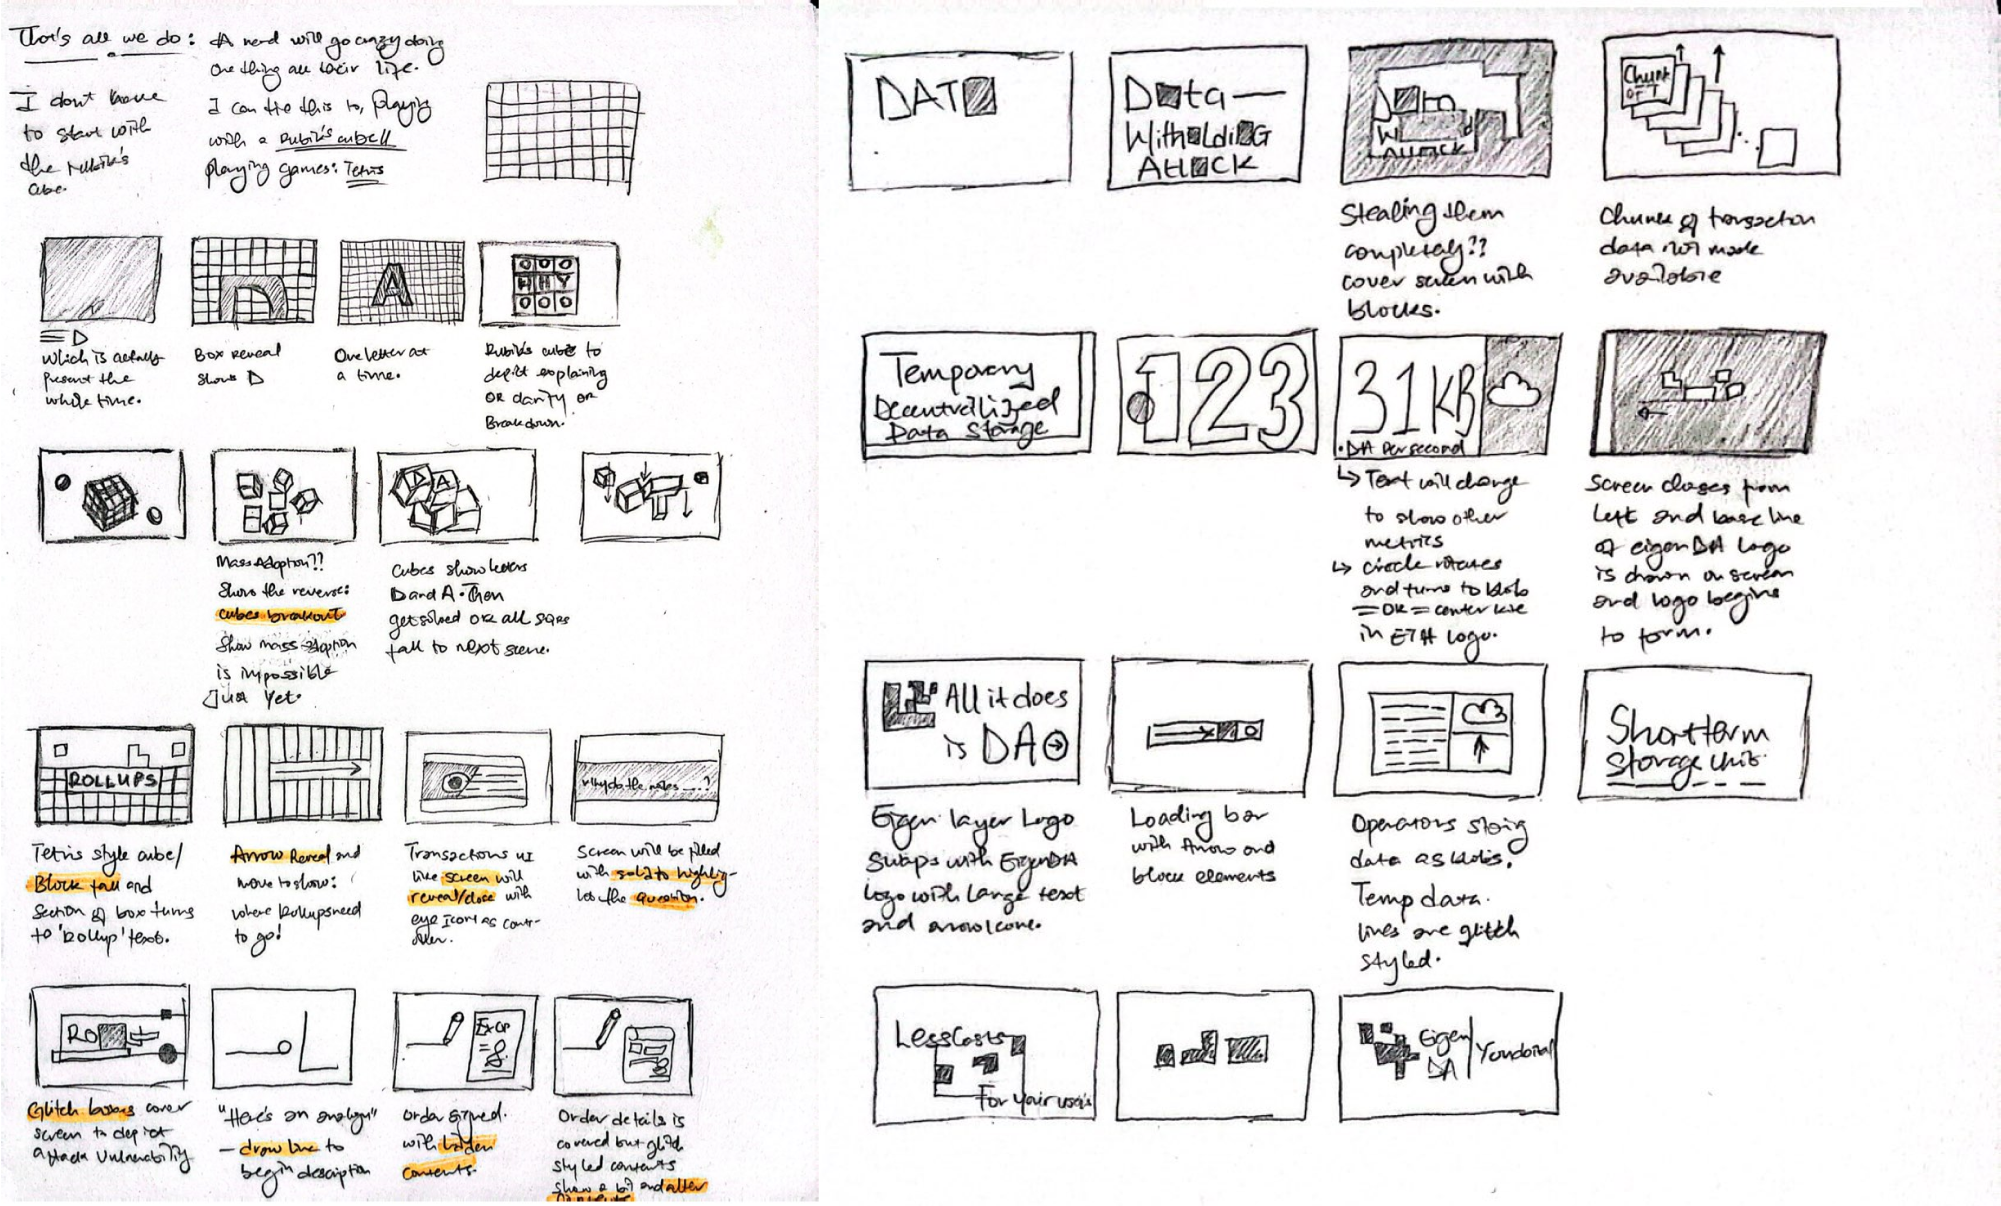 That's all we do:
A nerd will go crazy doing
one thing all their life.
I don't have
to start with
the rubik's
cube.
I can tie this to, playing
with a Rubik's cube//
playing games: Tetris
D
A
HY
which is actually
present the
whole time.
Box reveal
shows D
One letter at
a time.
Rubik's cube to
depict explaining
OR clarity OR
Breakdown.
D A
Mass Adoption??
Show the reverse:
cubes breakout
Show mass adoption
is impossible
Just Yet.
Cubes show letters
D and A. Then
get solved OR all SQRs
fall to next scene.
ROLLUPS
why do the ....?
Tetris style cube/
Block fall and
Section of box turns
to 'Rollup' text.
Arrow Reveal and
move to show:
where Rollups need
to go!
Transactions UI
like screen will
reveal/close with
eye Icon as contr-
oller.
Screen will be filled
with solid to highlig-
the question.
RO
Glitch boxes cover
screen to depict
attack Vulnerability
"Here's an analogy"
- draw line to
begin description
order signed.
with hidden
contents.
Order details is
covered but glitch
styled contents
show a bit and alter
DAT
Data
Witholding
Attack
D
W
ATTACK
Chunk
OF T
Stealing them
completely??
cover screen with
blocks.
Chunk of transaction
data not made
available
Temporary
Decentralized
Data Storage
123
31KB
DA per second
↳ Text will change
to show other
metrics
↳ circle rotates
and turns to blob
= OR = center line
in ETH logo.
Screen closes from
left and base line
of eigenDA logo
is drawn on screen
and logo begins
to form.
All it does
is DA
Short term
storage unit.
Eigen layer Logo
swaps with EigenDA
logo with large text
and arrow icone.
Loading bar
with Arrow and
block elements
Operators storing
data as blobs.
Temp data.
lines are glitch
styled.
Less Costs
For your users
Eigen
DA